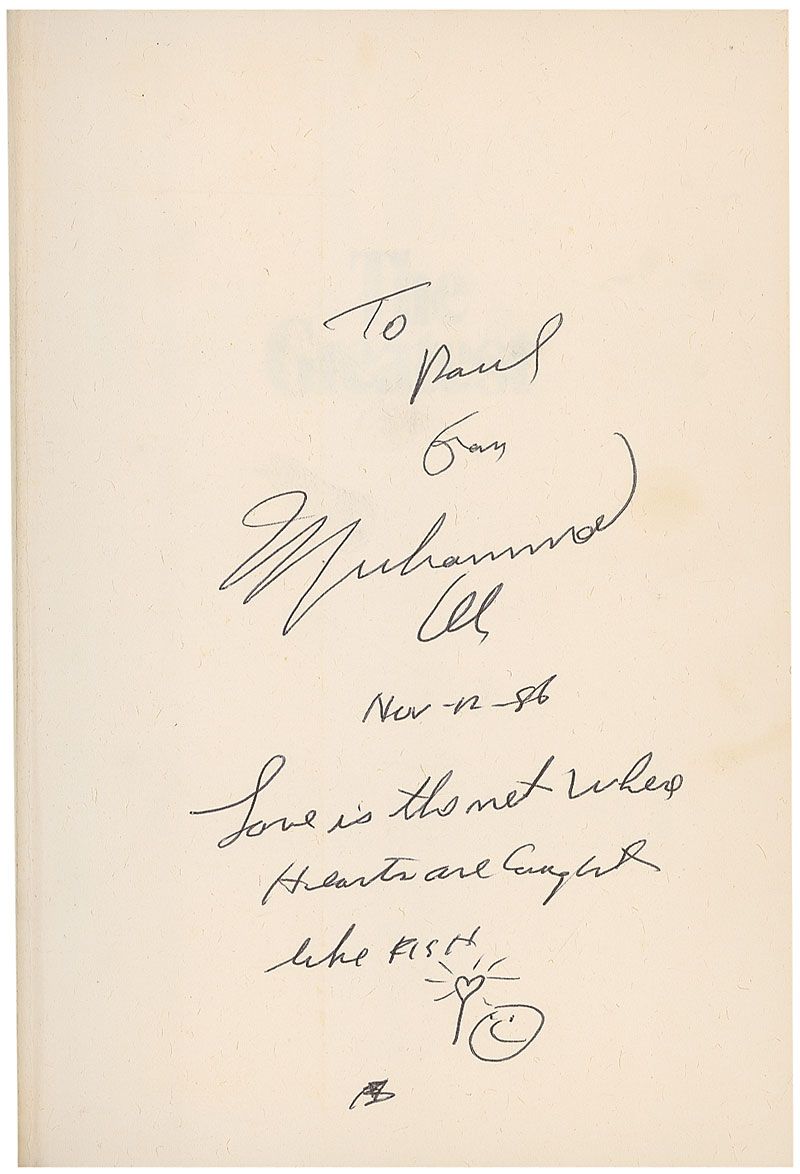 To
Paul
From
Muhammad
Ali
Nov-12-86
Love is the net where
Hearts are Caught
like FISH